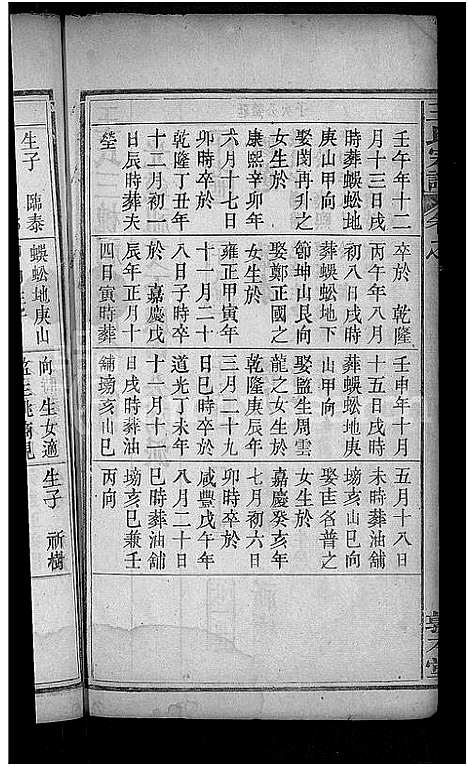 王氏宗譜
壬午年十二
月十三日戌
時葬蜈蚣地
庚山甲向
娶閔再升之
女生於
康熙辛卯年
六月十七日
卯時卒於
乾隆丁丑年
十二月初一
日辰時葬夫
塋
卒於 乾隆
丙午年八月
初八日戌時
葬蜈蚣地下
節坤山艮向
娶鄭正國之
女生於
雍正甲寅年
十一月二十
八日子時卒
於 嘉慶戊
辰年正月十
四日寅時葬
壬申年十月
十五日戌時
葬蜈蚣地庚
山甲向
娶監生周雲
龍之女生於
乾隆庚辰年
三月二十九
日巳時卒於
道光丁未年
十一月十一
日戌時葬油
舖塝亥山巳
五月十八日
未時葬油舖
塝亥山巳向
娶吉各普之
女生於
嘉慶癸亥年
七月初六日
卯時卒於
咸豐戊午年
八月二十日
巳時葬油舖
塝亥巳兼壬
丙向
生子 臨泰
蜈蚣地庚山
向 生女適
生子 祈樹